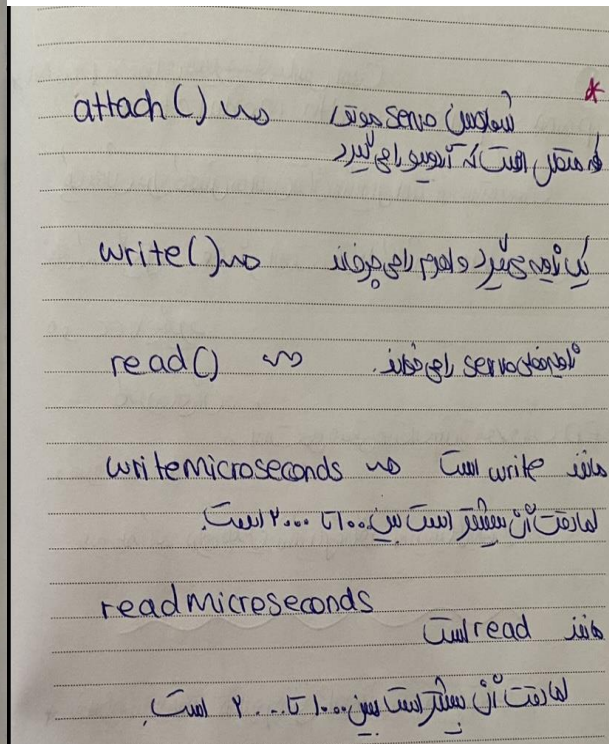 * attach() ⇝ شماره پین servo موتور
که متصل است که آردوینو را می گیرد
write() ⇝ یک زاویه می گیرد و اهرم را می چرخاند
read() ⇝ زاویه فعلی servo را می خواند.
writemicroseconds ⇝ مانند write است
اما دقت آن بیشتر است بین ۱۰۰۰ تا ۲۰۰۰ است.
readmicroseconds
مانند read است
اما دقت آن بیشتر است بین ۱۰۰۰ تا ۲۰۰۰ است.